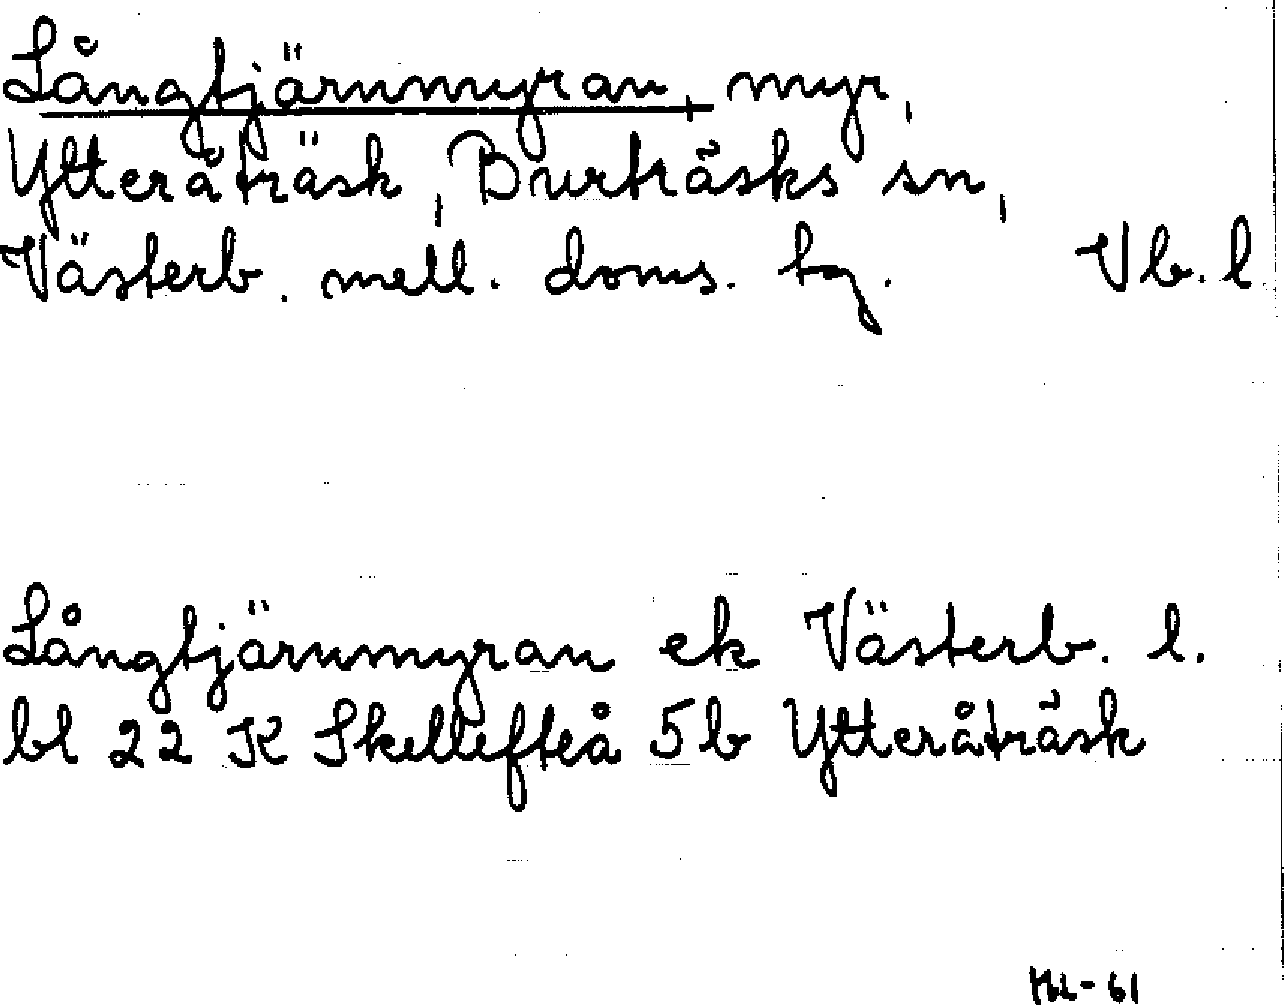 Långtjärnmyran, myr,
Ytteråträsk, Burträsks sn,
Västerb. mell. doms. tg. Vb. l.
Långtjärnmyran ek Västerb. l.
bl 22 K Skellefteå 5b Ytteråträsk